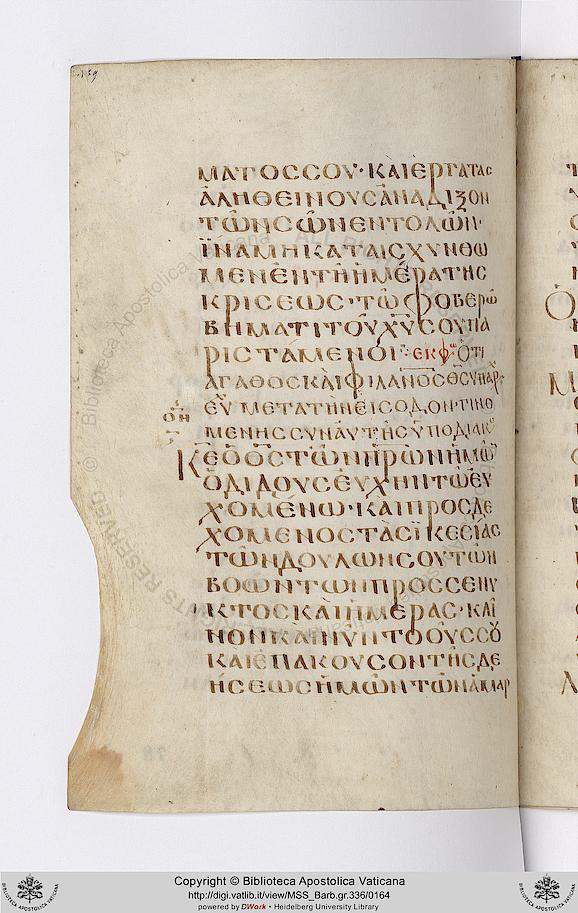 ΜΑΤΟΣ ΣΟΥ· ΚΑΙ ΕΡΓΑΤΑΣ
ΑΛΗΘΕΙΝΟΥΣ ΑΝΑΔΙΞΟΝ
ΤΩΝ ΣΩΝ ΕΝΤΟΛΩΝ·
ΪΝΑ ΜΗ ΚΑΤΑΙΣΧΥΝΘΩ
ΜΕΝ ΕΝ ΤΗ ΗΜΕΡΑ ΤΗΣ
ΚΡΙΣΕΩΣ· ΤΩ ΦΟΒΕΡΩ
ΒΗΜΑΤΙ ΤΟΥ ΧΥ ΣΟΥ ΠΑ
ΡΙΣΤΑΜΕΝΟΙ· ΕΚΦ ΟΤΙ
ΑΓΑΘΟΣ ΚΑΙ ΦΙΛΑΝΟΣ ΘΣ ΥΠΑΡ
ΕΥ ΜΕΤΑ ΤΗΝ ΕΙΣΟΔΟΝ
ΜΕΝΗΣ ΣΥΝΑΥΤΗΣ ΥΠΟΔΙΑΚ
ΚΕ Ο ΘΣ ΤΩΝ ΠΡΩΝ ΗΜΩ
Ο ΔΙΔΟΥΣ ΕΥΧΗΝ ΤΩ ΕΥ
ΧΟΜΕΝΩ· ΚΑΙ ΠΡΟΣΔΕ
ΧΟΜΕΝΟΣ ΤΑΣ ΪΚΕΣΙΑΣ
ΤΩΝ ΔΟΥΛΩΝ ΣΟΥ ΤΩΝ
ΒΟΩΝΤΩΝ ΠΡΟΣ ΣΕ ΝΥ
ΚΤΟΣ ΚΑΙ ΗΜΕΡΑΣ· ΚΛΙ
ΝΟΝ ΚΑΙ ΝΥΝ ΤΟ ΟΥΣ ΣΟΥ
ΚΑΙ ΕΠΑΚΟΥΣΟΝ ΤΗΣ ΔΕ
ΗΣΕΩΣ ΗΜΩΝ ΤΩΝ ΑΜΑΡ
Copyright © Biblioteca Apostolica Vaticana
http://digi.vatlib.it/view/MSS_Barb.gr.336/0164
powered by DWork • Heidelberg University Library